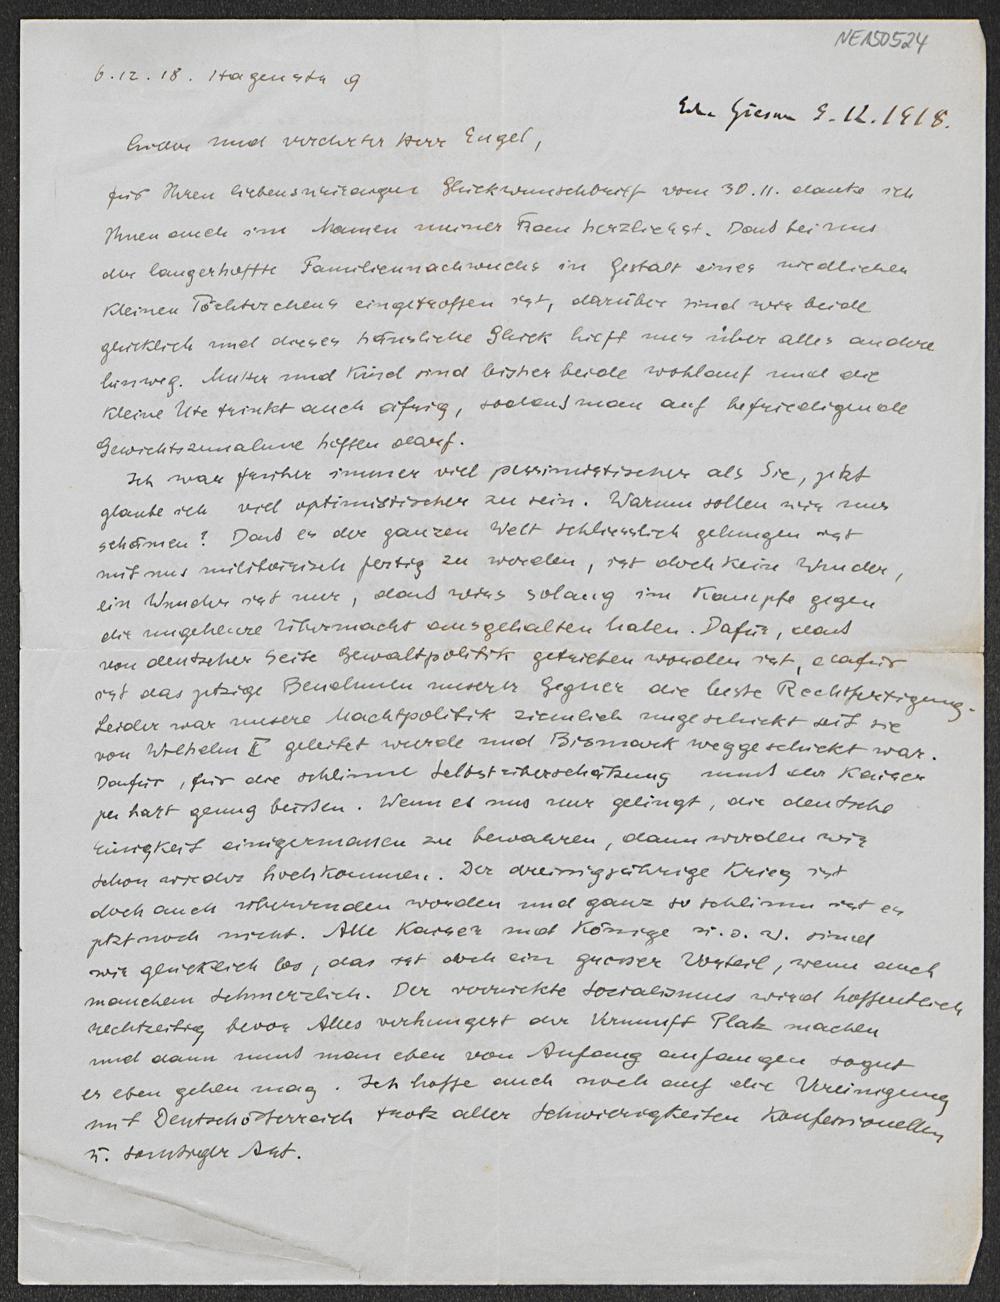 NE150524
6.12.18. Hagenstr 9
Erh. Giessen 9.12.1918.
Lieber und verehrter Herr Engel,
für Ihren liebenswürdigen Glückwunschbrief vom 30.11. danke ich
Ihnen auch im Namen meiner Frau herzlichst. Dass bei uns
der langerhoffte Familiennachwuchs in Gestalt eines niedlichen
kleinen Töchterchens eingetroffen ist, darüber sind wir beide
glücklich und dieses häusliche Glück hilft uns über alles andere
hinweg. Mutter und Kind sind bisher beide wohlauf und die
kleine Ute trinkt auch eifrig, sodass man auf befriedigende
Gewichtszunahme hoffen darf.
Ich war früher immer viel pessimistischer als Sie, jetzt
glaube ich viel optimistischer zu sein. Warum sollen wir uns
schämen? Dass es der ganzen Welt schliesslich gelungen ist
mit uns militärisch fertig zu werden, ist doch kein Wunder,
ein Wunder ist nur, dass wirs solang im Kampfe gegen
die ungeheure Übermacht ausgehalten haben. Dafür, dass
von deutscher Seite Gewaltpolitik getrieben worden ist, dafür
ist das jetzige Benehmen unserer Gegner die beste Rechtfertigung.
Leider war unsere Machtpolitik ziemlich ungeschickt seit sie
von Wilhelm II geleitet wurde und Bismark weggeschickt war.
Dafür, für die schlimme Selbstüberschätzung muss der Kaiser
ja hart genug büssen. Wenn es uns nur gelingt, die deutsche
Einigkeit einigermassen zu bewahren, dann werden wir
schon wieder hochkommen. Der dreissigjährige Krieg ist
doch auch überwunden worden und ganz so schlimm ist es
jetzt noch nicht. Alle Kaiser und Könige u.s.w. sind
wir glücklich los, das ist doch ein grosser Vorteil, wenn auch
manchem schmerzlich. Der verrückte Socialismus wird hoffentlich
rechtzeitig bevor Alles verhungert der Vernunft Platz machen
und dann muss man eben von Anfang anfangen sogut
es eben gehen mag. Ich hoffe auch noch auf die Vereinigung
mit Deutschösterreich trotz aller Schwierigkeiten konfessioneller
u. sonstiger Art.